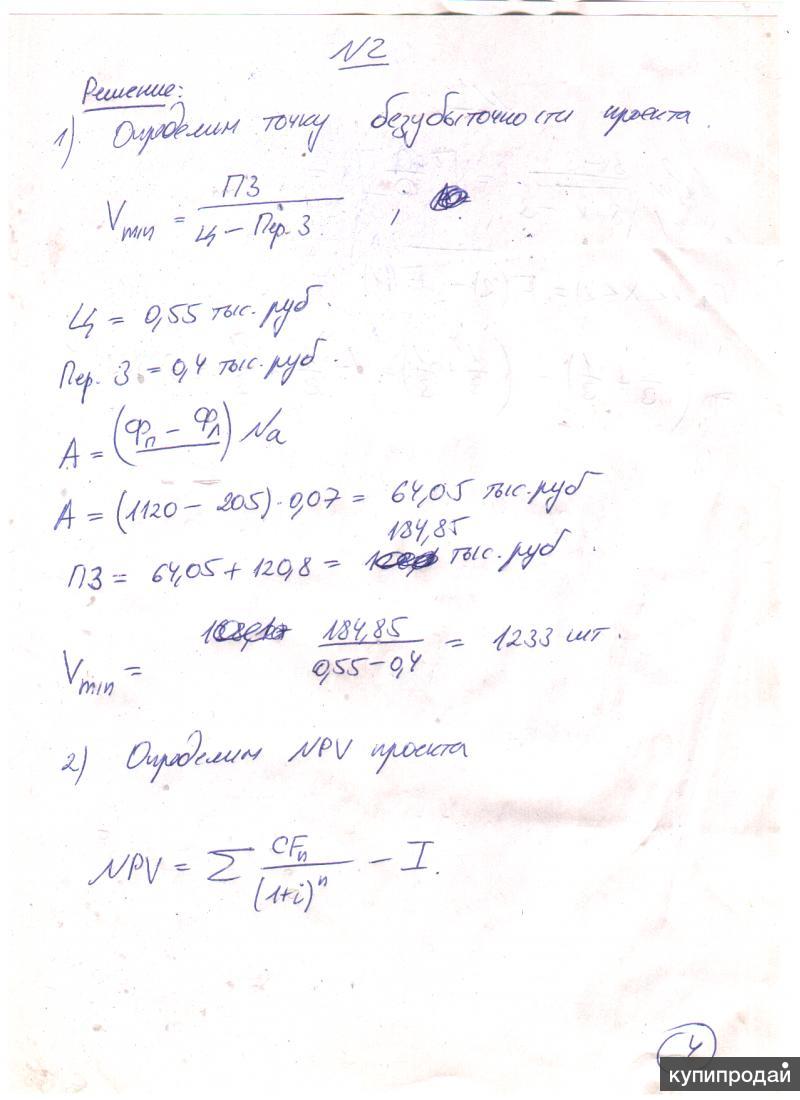 N2
Решение:
1) Определим точку безубыточности проекта.
Vmin = ПЗ / (Ц – Пер. З) ,
Ц = 0,55 тыс. руб.
Пер. З = 0,4 тыс. руб.
А = (Фп – Фл) Na
А = (1120 – 205) · 0,07 = 64,05 тыс. руб
184,85
ПЗ = 64,05 + 120,8 = тыс. руб.
Vmin = 184,85 / (0,55 – 0,4) = 1233 шт.
2) Определим NPV проекта
NPV = Σ CFn / (1+i)^n – I.
4
купипродай